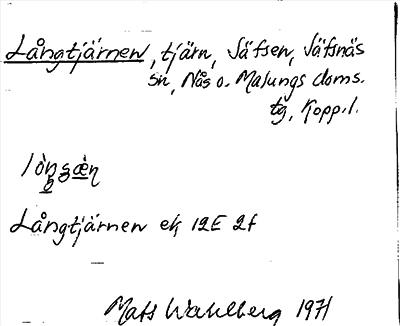 Långtjärnen, tjärn, Säfsen, Säfsnäs
sn, Nås o. Malungs doms.
tg, Kopp.l.
Långtjärnen ek 12E 2f
Mats Wahlberg 1971